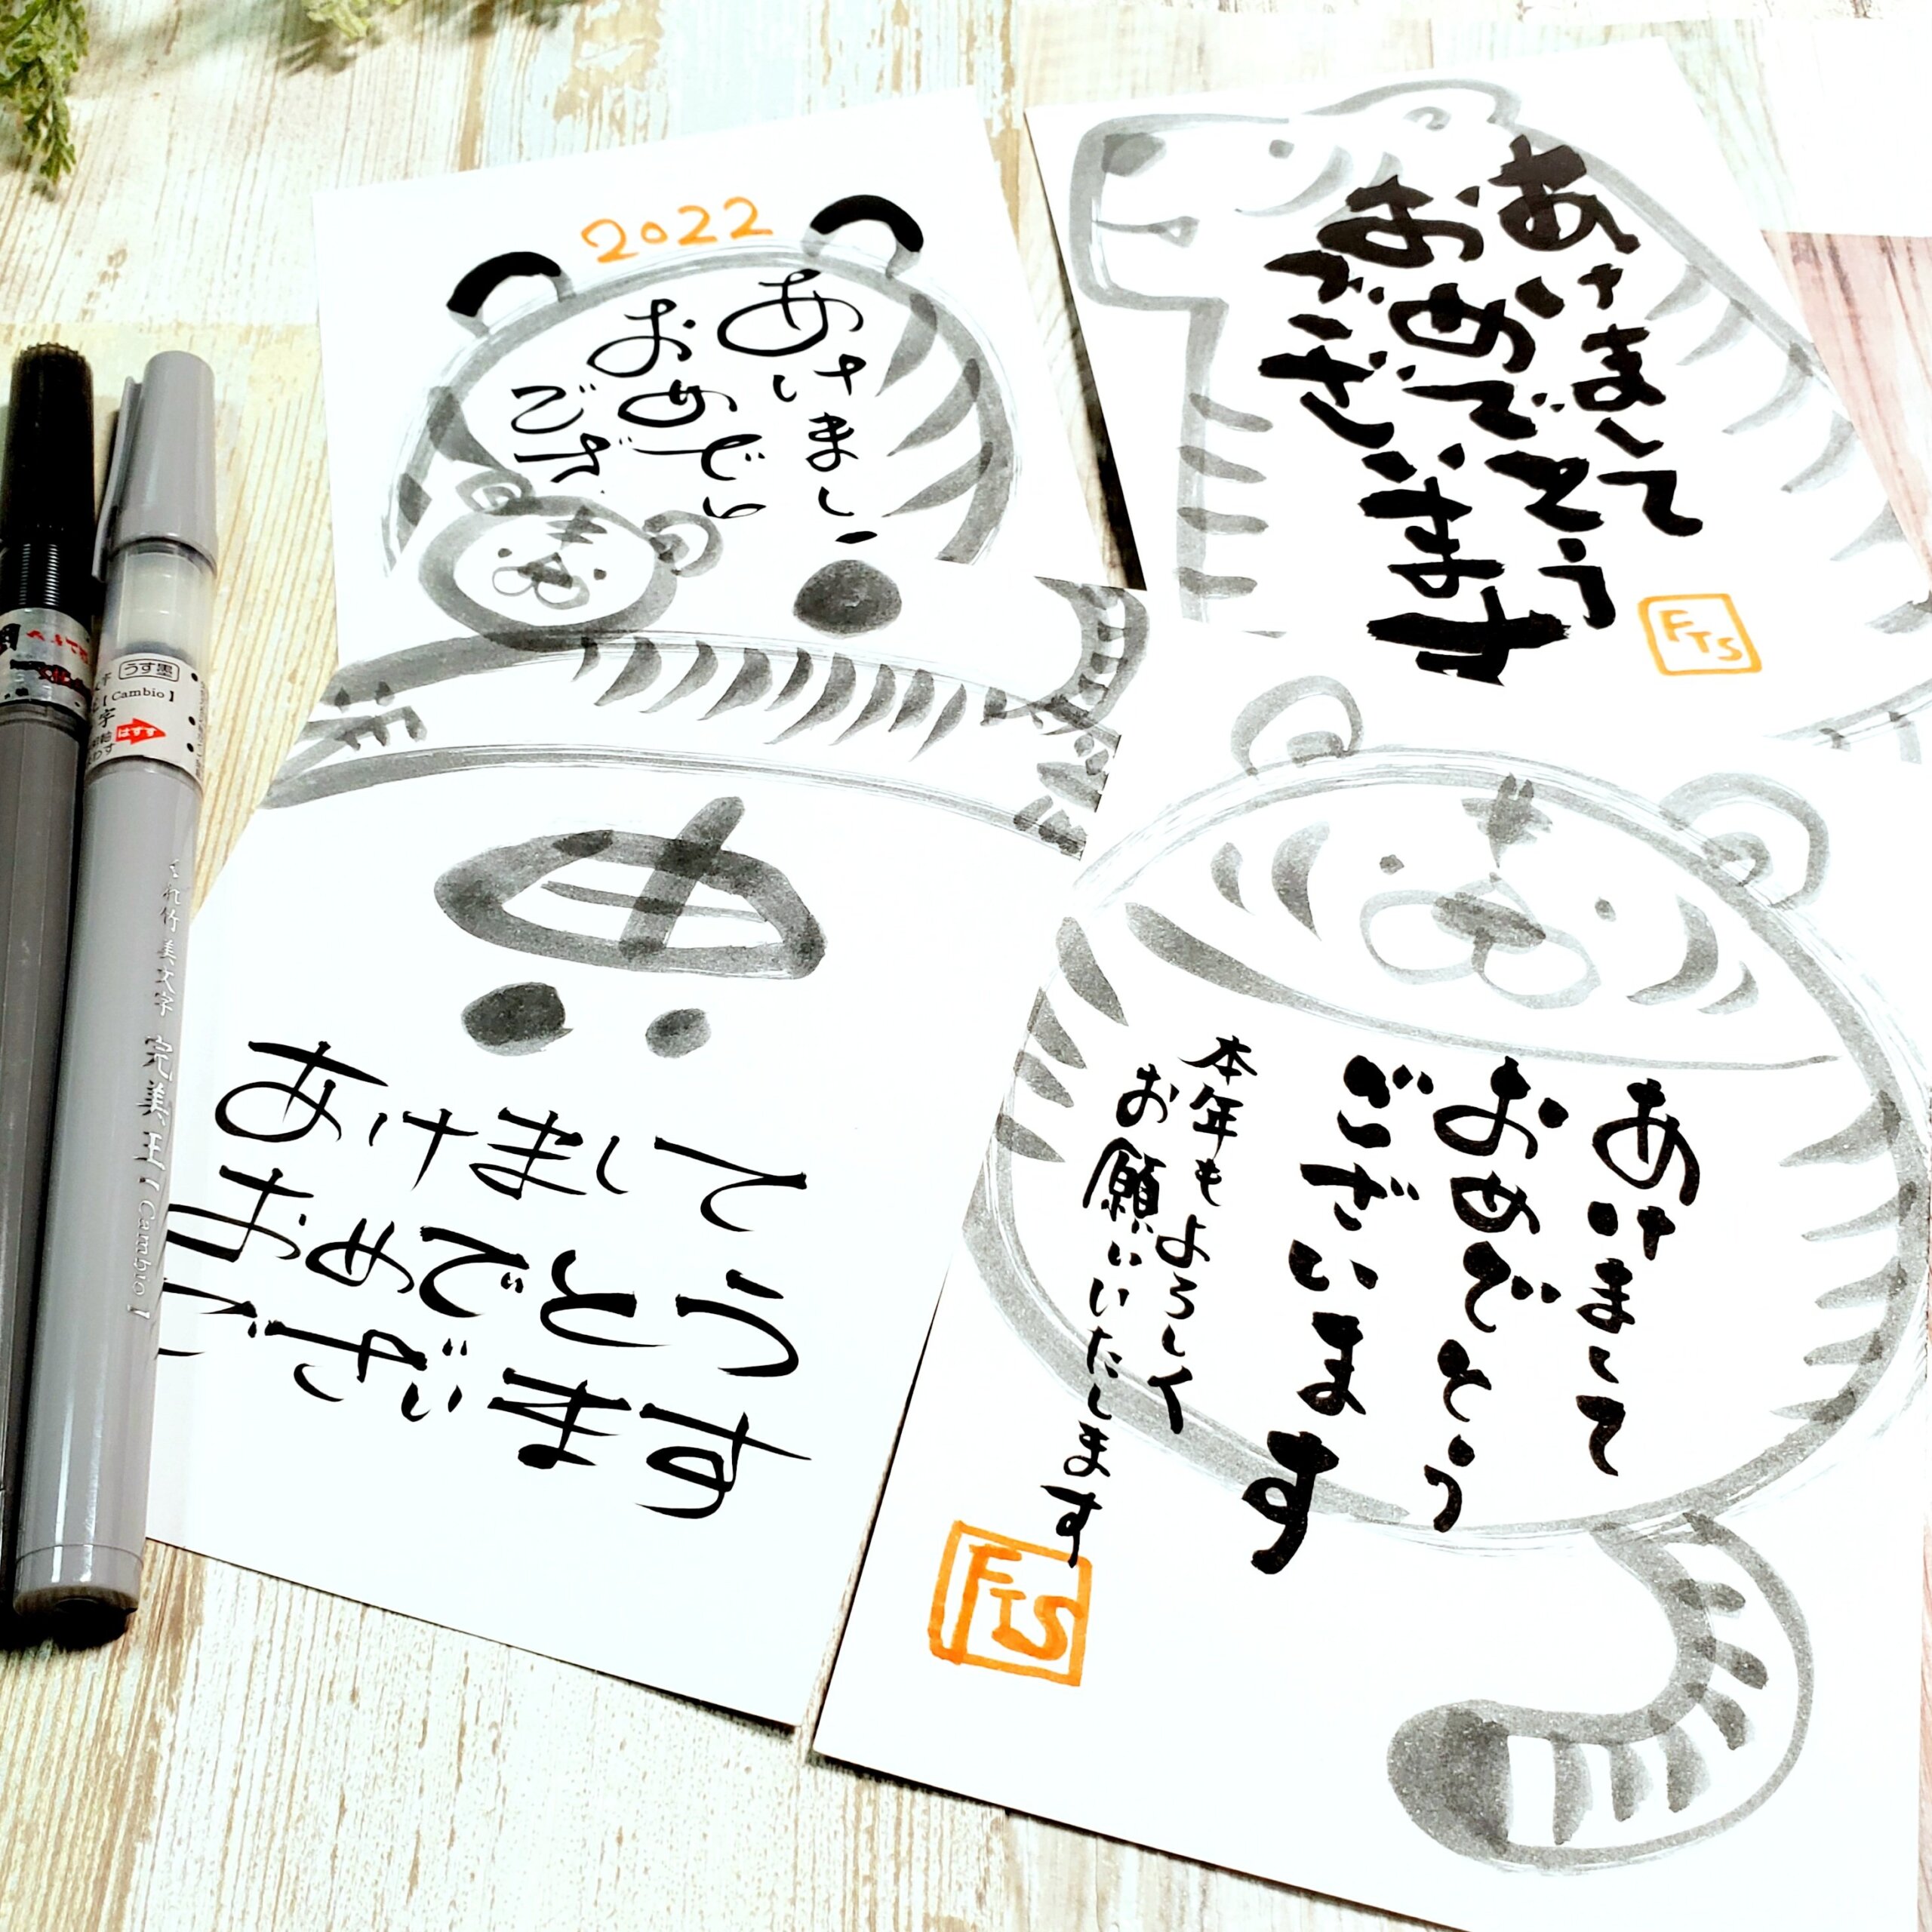 2022
あけまし
おめで
ござ
あけまして
おめでとう
ございます
FTS
あけまして
おめでとう
ございます
あけまして
おめでとう
ございます
本年もよろしく
お願いいたします
FTS
うす墨
【Cambio】
はずす
くれ竹美文字 完美王【Cambio】